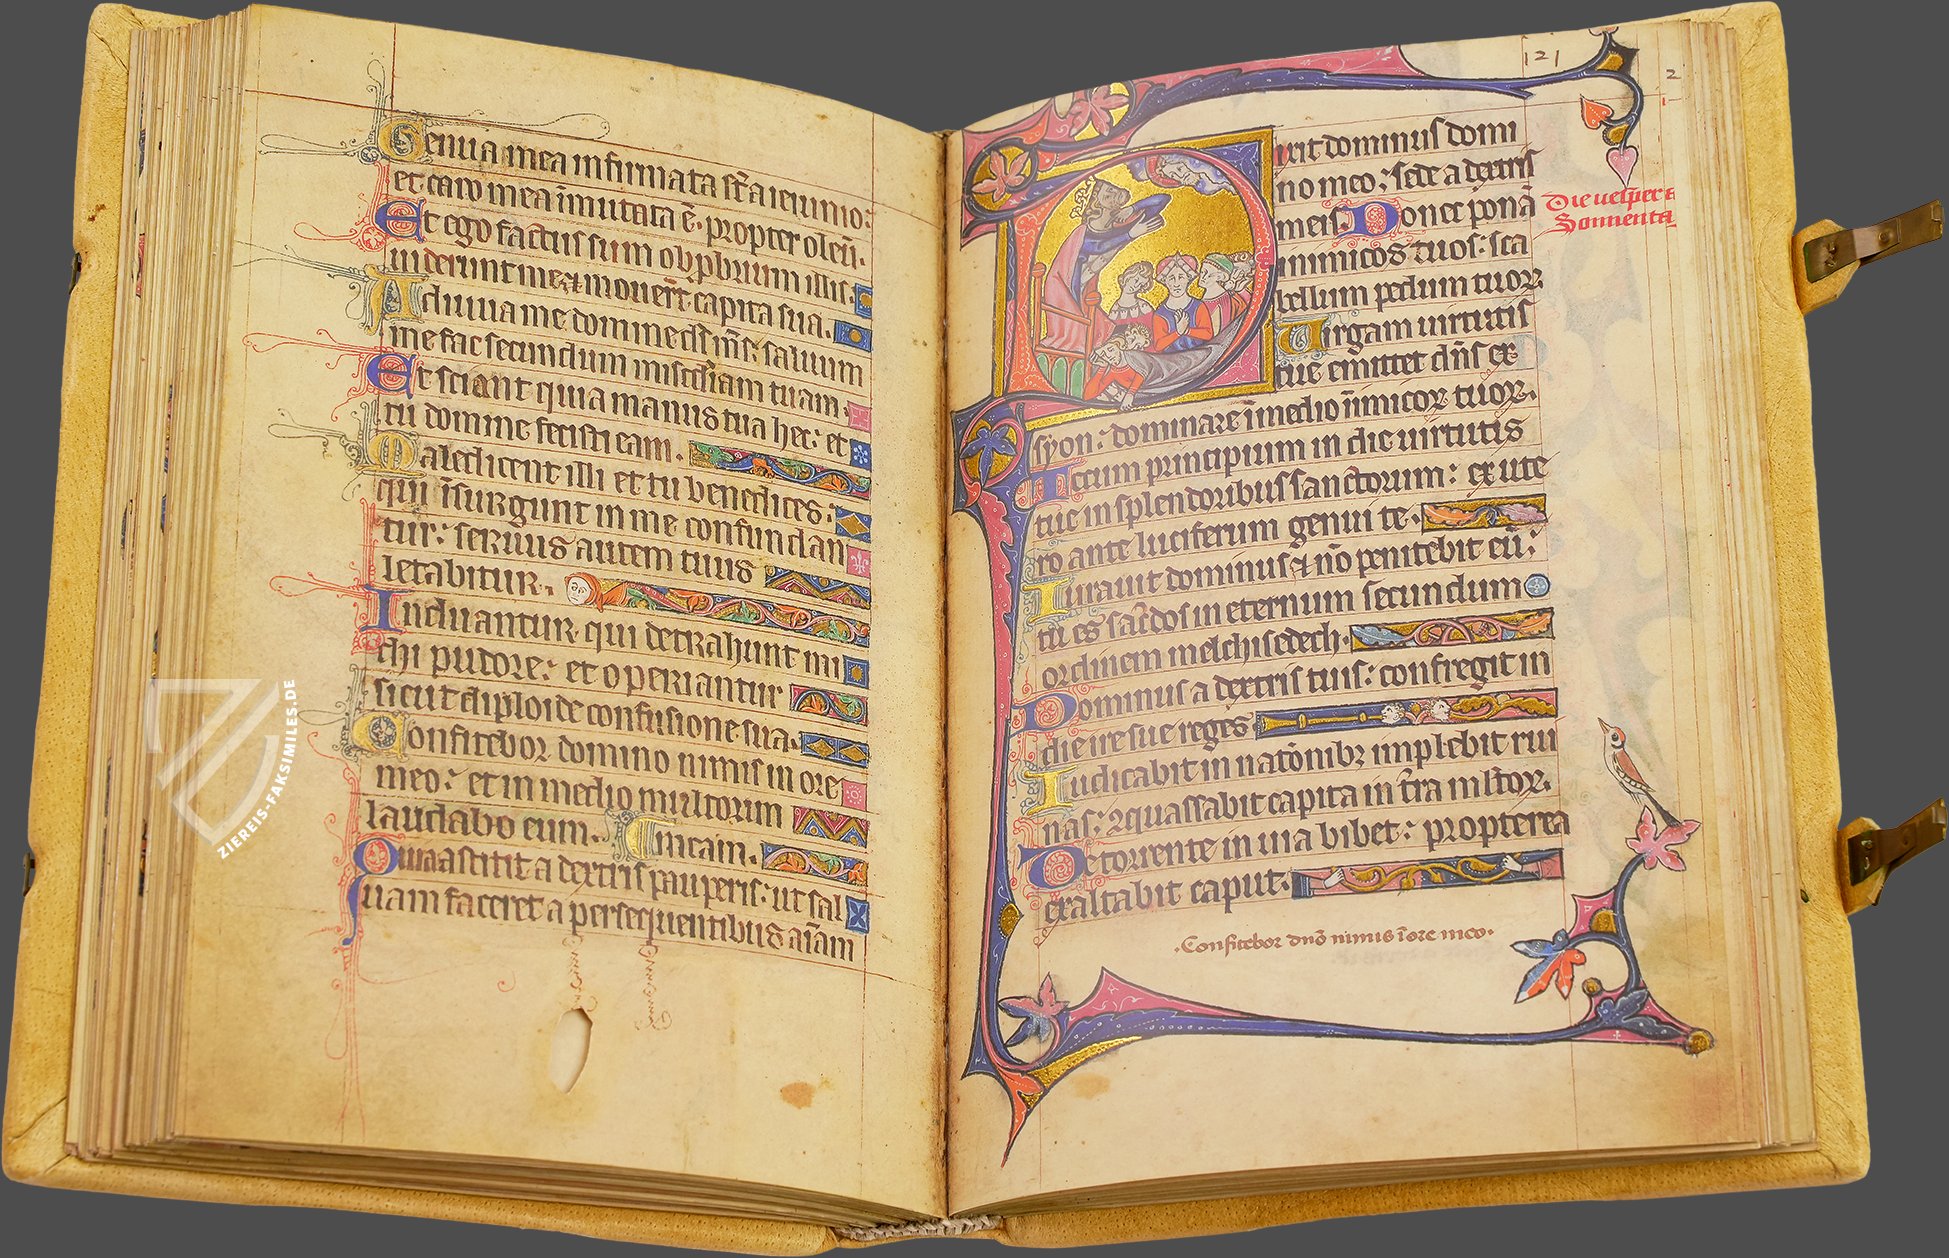 Genua mea infirmata st̄ a ieiunio:
et caro mea īmutata ē. propter oleū.
Et ego factus sum obp̄brium illis.
uiderunt me ⁊ mouer̄t capita sua.
Adiuua me domine ds̄ ms̄: saluum
me fac secundum misc̄diam tuam.
Et sciant quia manus tua hec: et
tu domine fecisti eam.
Maledicent illi et tu benedices:
qui īsurgunt in me confundan
tur: seruus autem tuus
letabitur.
Induantur qui detrahunt mi
chi pudore: et operiantur
sicut diploide confusione sua.
Confitebor domino nimis in ore
meo: et in medio multorum
laudabo eum.
Quia astitit a dextris pauperis: ut sal
uam faceret a persequentibus aīam
121
2
Dixit dominus domi
no meo: sede a dextris
meis. Donec ponā
inimicos tuos: sca
bellum pedum tuoꝝ.
Uirgam uirtutis
tue emittet dn̄s ex
syon: dominare ī medio īnimicoꝝ tuoꝝ.
Tecum principium in die uirtutis
tue in splendoribus sanctorum: ex ute
ro ante luciferum genui te.
Iurauit dominus ⁊ nō penitebit eū:
tu es sac̄dos in eternum secundum
ordinem melchisedech.
Dominus a dextris tuis: confregit in
die ire sue reges
Iudicabit in natōnibꝫ implebit rui
nas: ⁊quassabit capita in t̄ra ml̄toꝝ.
De torrente in uia bibet: propterea
exaltabit caput.
Die uesper
Sonnenta
.Confitebor dn̄o nimis ī ore meo.
ZIEREIS-FAKSIMILES.DE